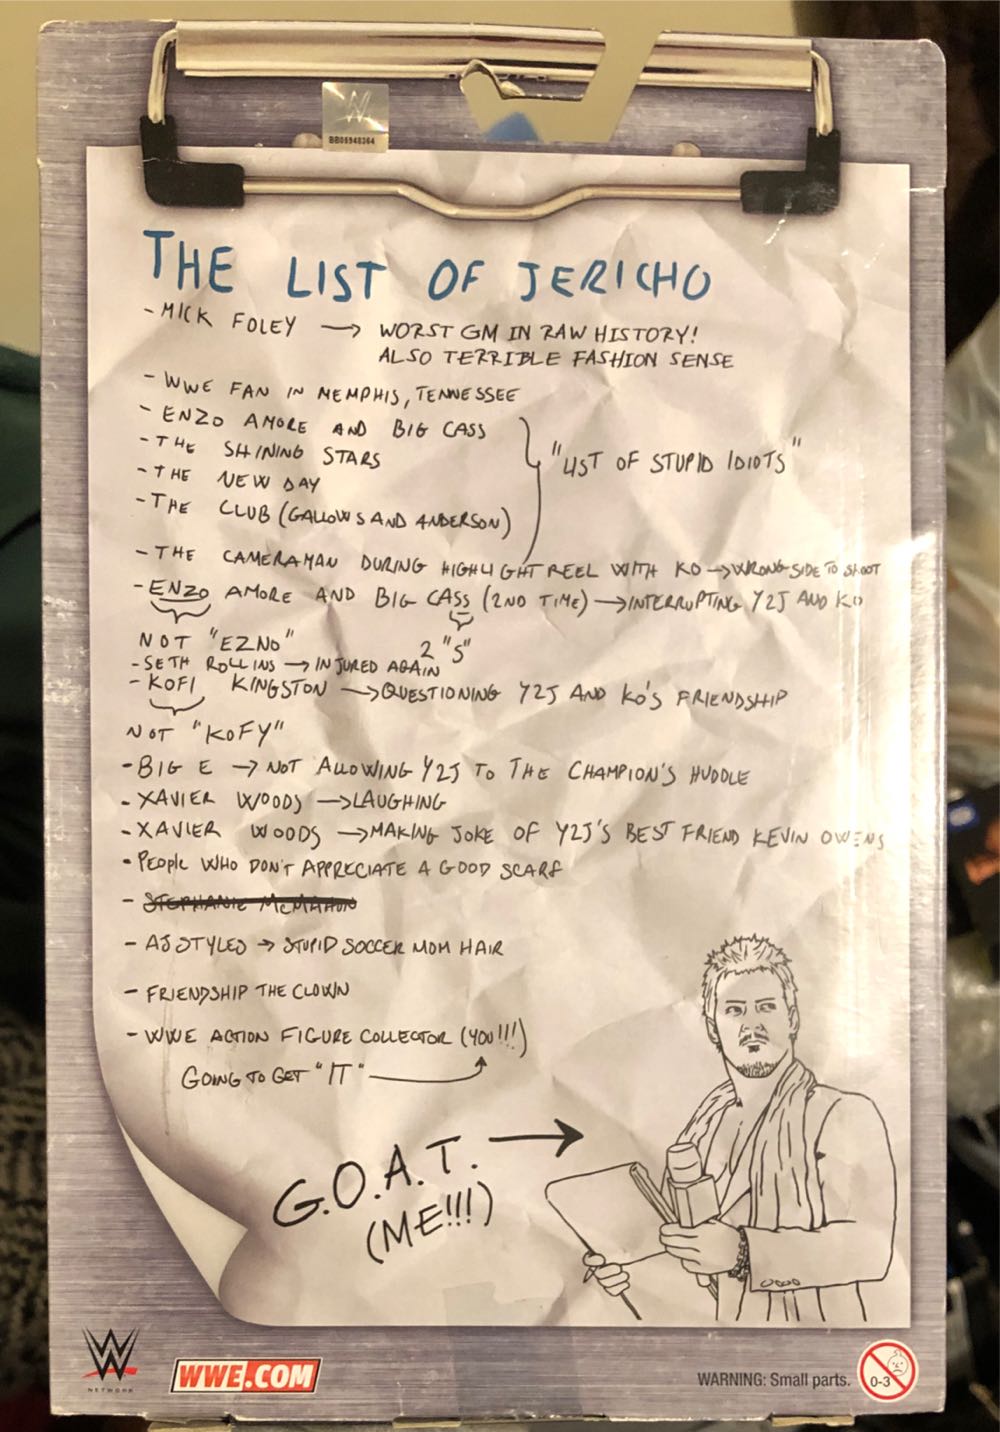 W
BB06948364
THE LIST OF JERICHO
- MICK FOLEY → WORST GM IN RAW HISTORY!
ALSO TERRIBLE FASHION SENSE
- WWE FAN IN MEMPHIS, TENNESSEE
- ENZO AMORE AND BIG CASS
- THE SHINING STARS
"LIST OF STUPID IDIOTS"
- THE NEW DAY
- THE CLUB (GALLOWS AND ANDERSON)
- THE CAMERAMAN DURING HIGHLIGHT REEL WITH KO → WRONG SIDE TO SHOOT
- ENZO AMORE AND BIG CASS (2ND TIME) → INTERRUPTING Y2J AND KO
NOT "EZNO" 2 "S"
- SETH ROLLINS → INJURED AGAIN
- KOFI KINGSTON → QUESTIONING Y2J AND KO'S FRIENDSHIP
NOT "KOFY"
- BIG E → NOT ALLOWING Y2J TO THE CHAMPION'S HUDDLE
- XAVIER WOODS → LAUGHING
- XAVIER WOODS → MAKING JOKE OF Y2J'S BEST FRIEND KEVIN OWENS
- PEOPLE WHO DON'T APPRECIATE A GOOD SCARF
- STEPHANIE McMAHON
- AJ STYLES → STUPID SOCCER MOM HAIR
- FRIENDSHIP THE CLOWN
- WWE ACTION FIGURE COLLECTOR (YOU!!!)
GOING TO GET "IT"
G.O.A.T. →
(ME!!!)
W
NETWORK
WWE.COM
WARNING: Small parts.
0-3